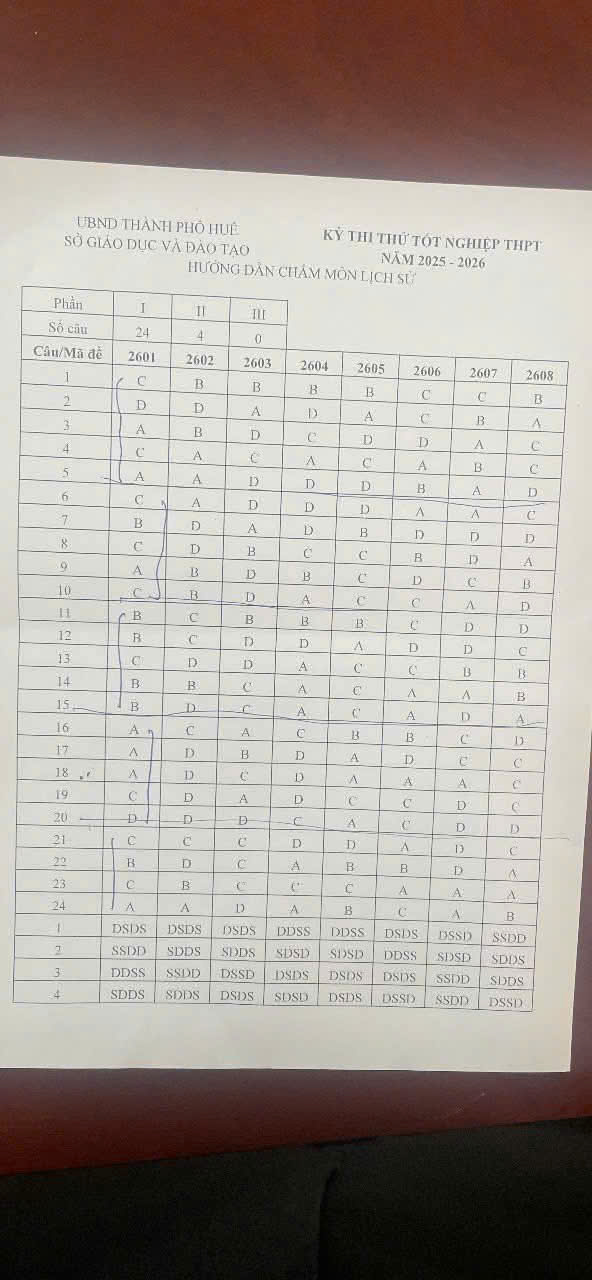 UBND THÀNH PHỐ HUẾ
SỞ GIÁO DỤC VÀ ĐÀO TẠO
KỲ THI THỬ TỐT NGHIỆP THPT
NĂM 2025 - 2026
HƯỚNG DẪN CHẤM MÔN LỊCH SỬ
Phần I II III
Số câu 24 4 0
Câu/Mã đề 2601 2602 2603 2604 2605 2606 2607 2608
1 C B B B B C C B
2 D D A D A C B A
3 A B D C D D A C
4 C A C A C A B C
5 A A D D D B A D
6 C A D D D A A C
7 B D A D B D D D
8 C D B C C B D A
9 A B D B C D C B
10 C B D A C C A D
11 B C B B B C D D
12 B C D D A D D C
13 C D D A C C B B
14 B B C A C A A B
15 B D C A C A D A
16 A C A C B B C D
17 A D B D A D C C
18 A D C D A A A C
19 C D A D C C D C
20 D D D C A C D D
21 C C C D D A D C
22 B D C A B B D A
23 C B C C C A A A
24 A A D A B C A B
1 DSDS DSDS DSDS DDSS DDSS DSDS DSSD SSDD
2 SSDD SDDS SDDS SDSD SDSD DDSS SDSD SDDS
3 DDSS SSDD DSSD DSDS DSDS DSDS SSDD SDDS
4 SDDS SDDS DSDS SDSD DSDS DSSD SSDD DSSD